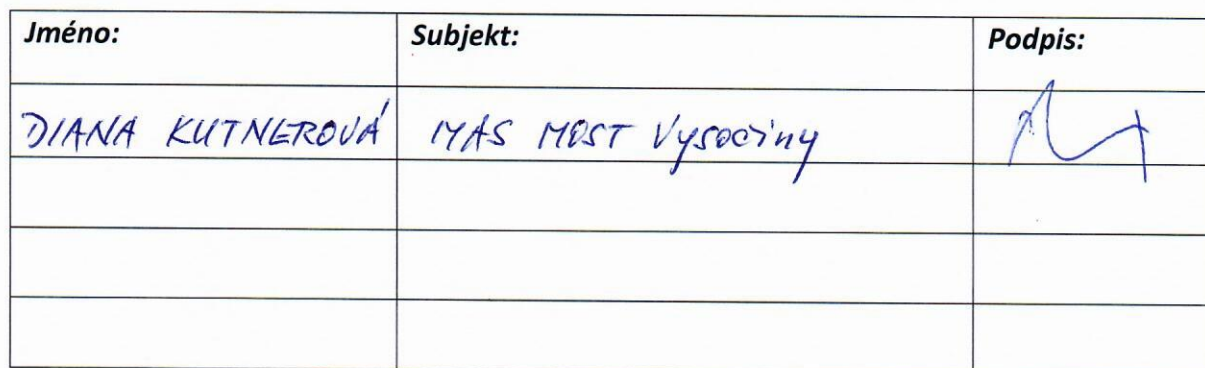 Jméno: Subjekt: Podpis:
DIANA KUTNEROVÁ MAS MOST Vysočiny